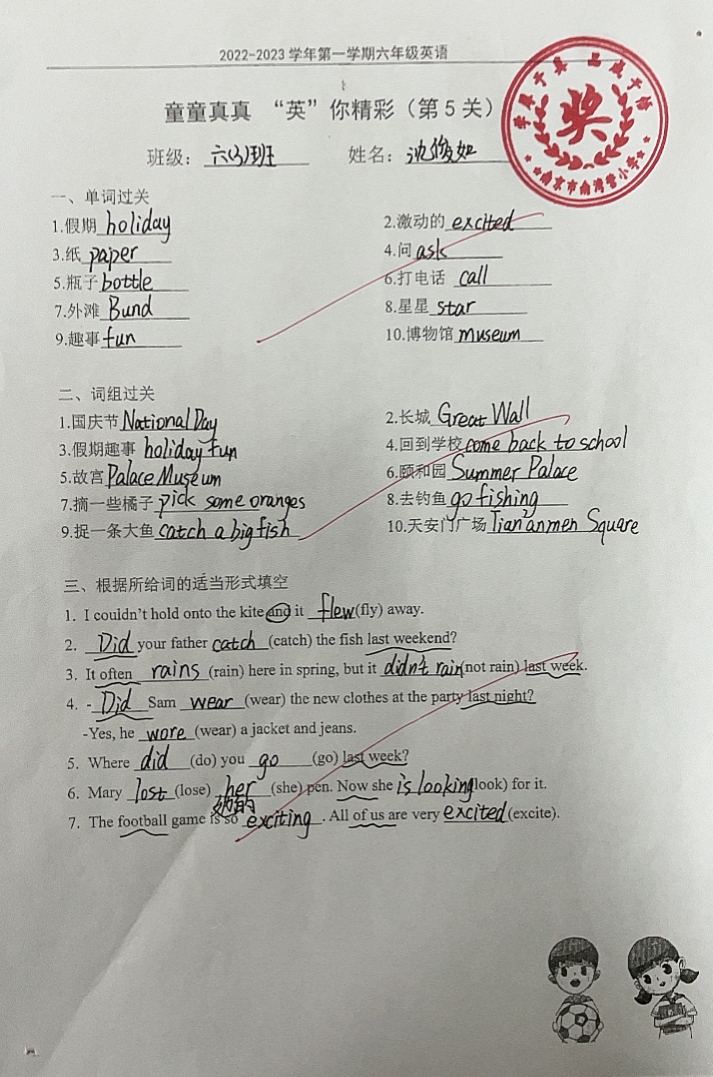 2022-2023学年第一学期六年级英语
童童真真 “英”你精彩（第5关）
班级： 六(3)班 姓名： 沈俊如
奖
南京市南湾营小学
一、单词过关
1.假期 holiday 2.激动的 excited
3.纸 paper 4.问 ask
5.瓶子 bottle 6.打电话 call
7.外滩 Bund 8.星星 star
9.趣事 fun 10.博物馆 museum
二、词组过关
1.国庆节 National Day 2.长城 Great Wall
3.假期趣事 holiday fun 4.回到学校 come back to school
5.故宫 Palace Museum 6.颐和园 Summer Palace
7.摘一些橘子 pick some oranges 8.去钓鱼 go fishing
9.捉一条大鱼 catch a big fish 10.天安门广场 Tian'anmen Square
三、根据所给词的适当形式填空
1. I couldn't hold onto the kite and it flew (fly) away.
2. Did your father catch (catch) the fish last weekend?
3. It often rains (rain) here in spring, but it didn't rain (not rain) last week.
4. - Did Sam wear (wear) the new clothes at the party last night?
-Yes, he wore (wear) a jacket and jeans.
5. Where did (do) you go (go) last week?
6. Mary lost (lose) her (she) pen. Now she is looking look) for it.
她的
7. The football game is so exciting. All of us are very excited (excite).